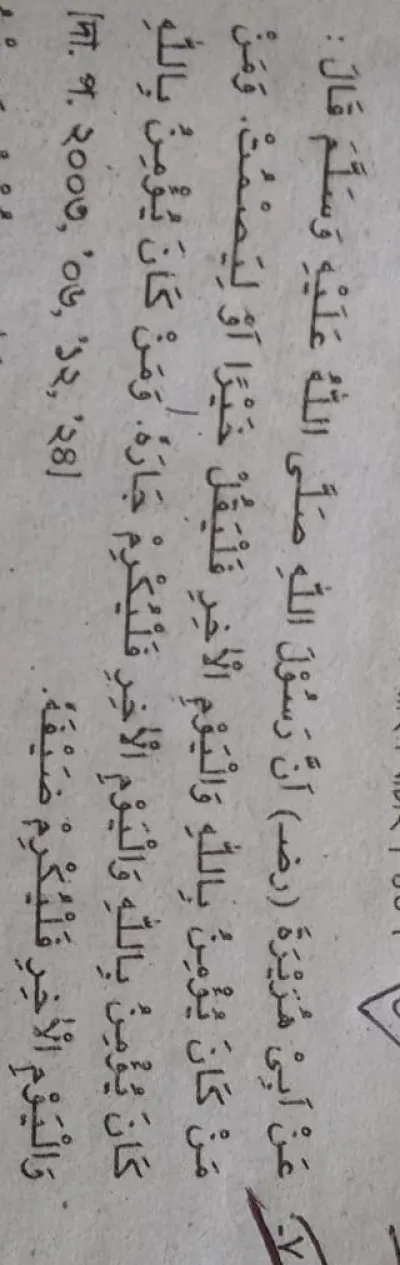 ٧- عَنْ اَبِىْ هُرَيْرَةَ (رضـ) اَنَّ رَسُوْلَ اللّٰهِ صَلَّى اللّٰهُ عَلَيْهِ وَسَلَّمَ قَالَ :
مَنْ كَانَ يُؤْمِنُ بِاللّٰهِ وَالْيَوْمِ الْاٰخِرِ فَلْيَقُلْ خَيْرًا اَوْ لِيَصْمُتْ. وَمَنْ
كَانَ يُؤْمِنُ بِاللّٰهِ وَالْيَوْمِ الْاٰخِرِ فَلْيُكْرِمْ جَارَهُ. وَمَنْ كَانَ يُؤْمِنُ بِاللّٰهِ
وَالْيَوْمِ الْاٰخِرِ فَلْيُكْرِمْ ضَيْفَهُ. [দা. প. ২০০৩, '০৬, '১২, '২৪]